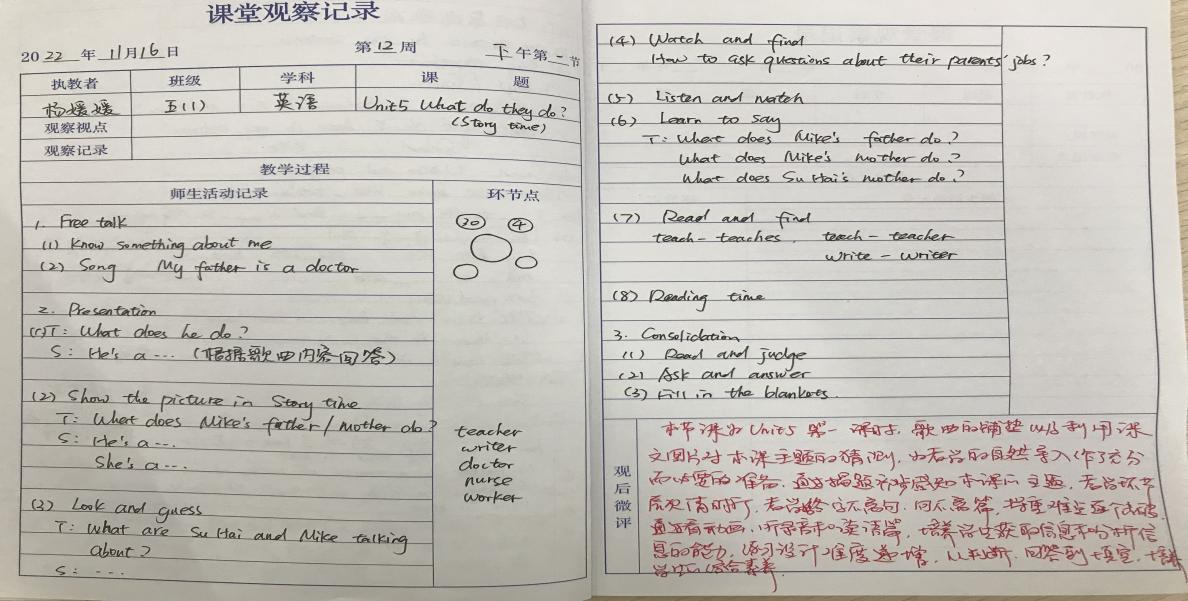 课堂观察记录
2022 年 11月16日 第12周 下午第一节
执教者 班级 学科 课 题
杨媛媛 五(1) 英语 Unit5 What do they do?
(Story time)
观察视点
观察记录
教学过程
师生活动记录 环节点
1. Free talk
(1) Know something about me
(2) Song My father is a doctor
30 4
2. Presentation
(1)T: What does he do?
S: He's a ... (根据歌曲内容回答)
(2) Show the picture in Story time
T: What does Mike's father / mother do?
S: He's a ...
She's a ...
teacher
writer
doctor
nurse
worker
(3) Look and guess
T: What are Su Hai and Mike talking
about?
S: ...
(4) Watch and find
How to ask questions about their parents' jobs?
(5) Listen and match
(6) Learn to say
T: What does Mike's father do?
What does Mike's mother do?
What does Su Hai's mother do?
(7) Read and find
teach - teaches. teach - teacher
write - writer
(8) Reading time
3. Consolidation
(1) Read and judge
(2) Ask and answer
(3) Fill in the blankets.
观后微评
本节课为Unit5 第一课时, 歌曲的铺垫以及利用课
文图片对本课主题的猜测, 为教学的自然导入作了充分
而必要的准备. 通过揭题初步感知本课的主题, 教学环节
层次清晰, 教学终
通过看动画, 听录音和 英语篇, 培养学生获取信息和分析信
息的能力, 练习设计难度递增, 从判断, 回答到填空, 培养
学生的综合素养.